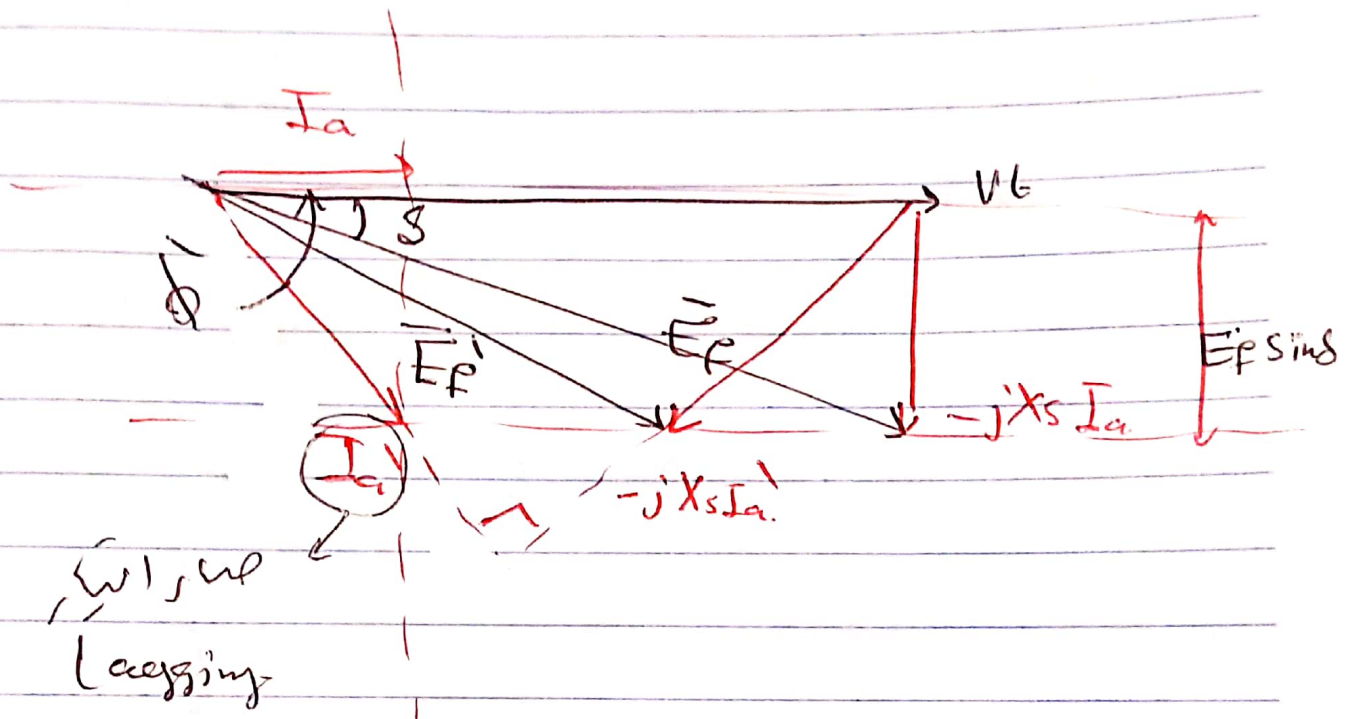 Ia
Vt
δ
Φ'
Ēf'
Ēf
Ef sinδ
-jXsIa
Ia'
-jXsIa'
Lagging